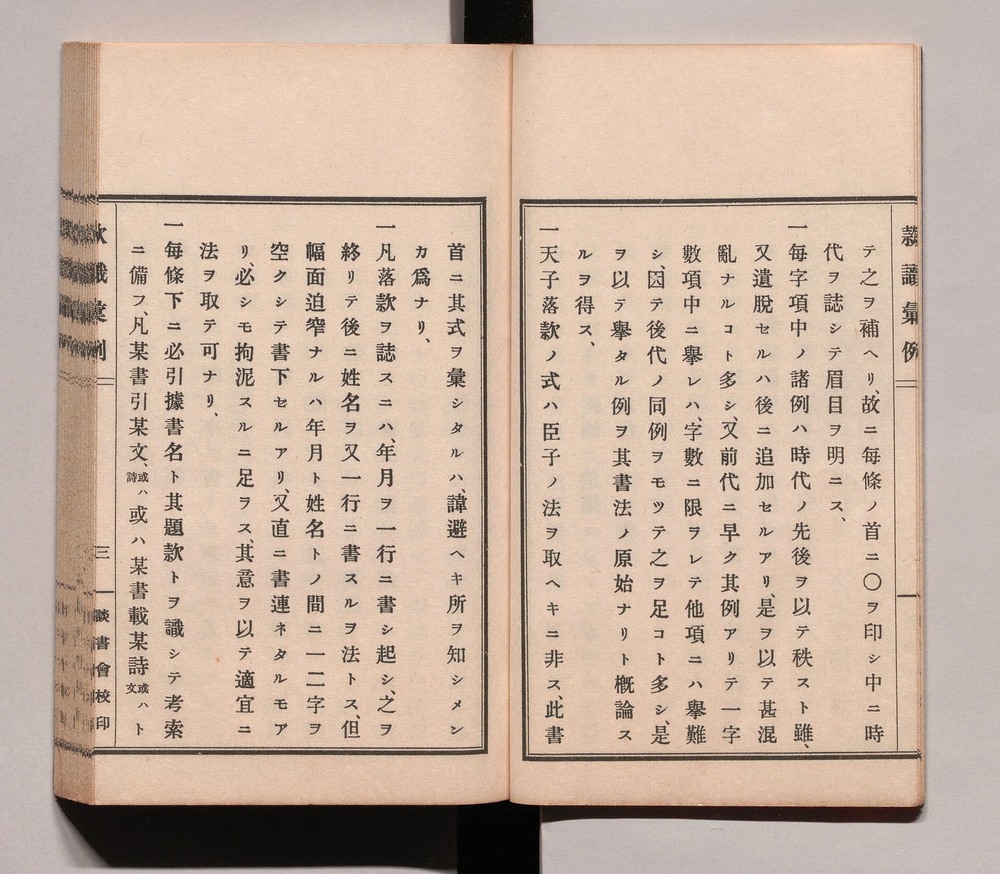 テ之ヲ補ヘリ、故ニ每條ノ首ニ〇ヲ印シ中ニ時
代ヲ誌シテ眉目ヲ明ニス、
一每字項中ノ諸例ハ時代ノ先後ヲ以テ秩スト雖、
又遺脱セルハ後ニ追加セルアリ、是ヲ以テ甚混
亂ナルコト多シ、又前代ニ早ク其例アリテ一字
數項中ニ擧レハ、字數ニ限ヲレテ他項ニハ擧難
シ、因テ後代ノ同例ヲモツテ之ヲ足コト多シ、是
ヲ以テ擧タル例ヲ其書法ノ原始ナリト槪論ス
ルヲ得ス、
一天子落款ノ式ハ臣子ノ法ヲ取ヘキニ非ス、此書
首ニ其式ヲ彙シタルハ、諱避ヘキ所ヲ知シメン
カ爲ナリ、
一凡落款ヲ誌スニハ、年月ヲ一行ニ書シ起シ、之ヲ
終リテ後ニ姓名ヲ又一行ニ書スルヲ法トス、但
幅面迫窄ナルハ年月ト姓名トノ間ニ一二字ヲ
空クシテ書下セルアリ、又直ニ書連ネタルモア
リ、必シモ拘泥スルニ足ヲス、其意ヲ以テ適宜ニ
法ヲ取テ可ナリ、
一每條下ニ必引據書名ト其題款トヲ識シテ考索
ニ備フ、凡某書引某文、或ハ詩或ハ某書載某詩或ハ文ト
三
談書會校印